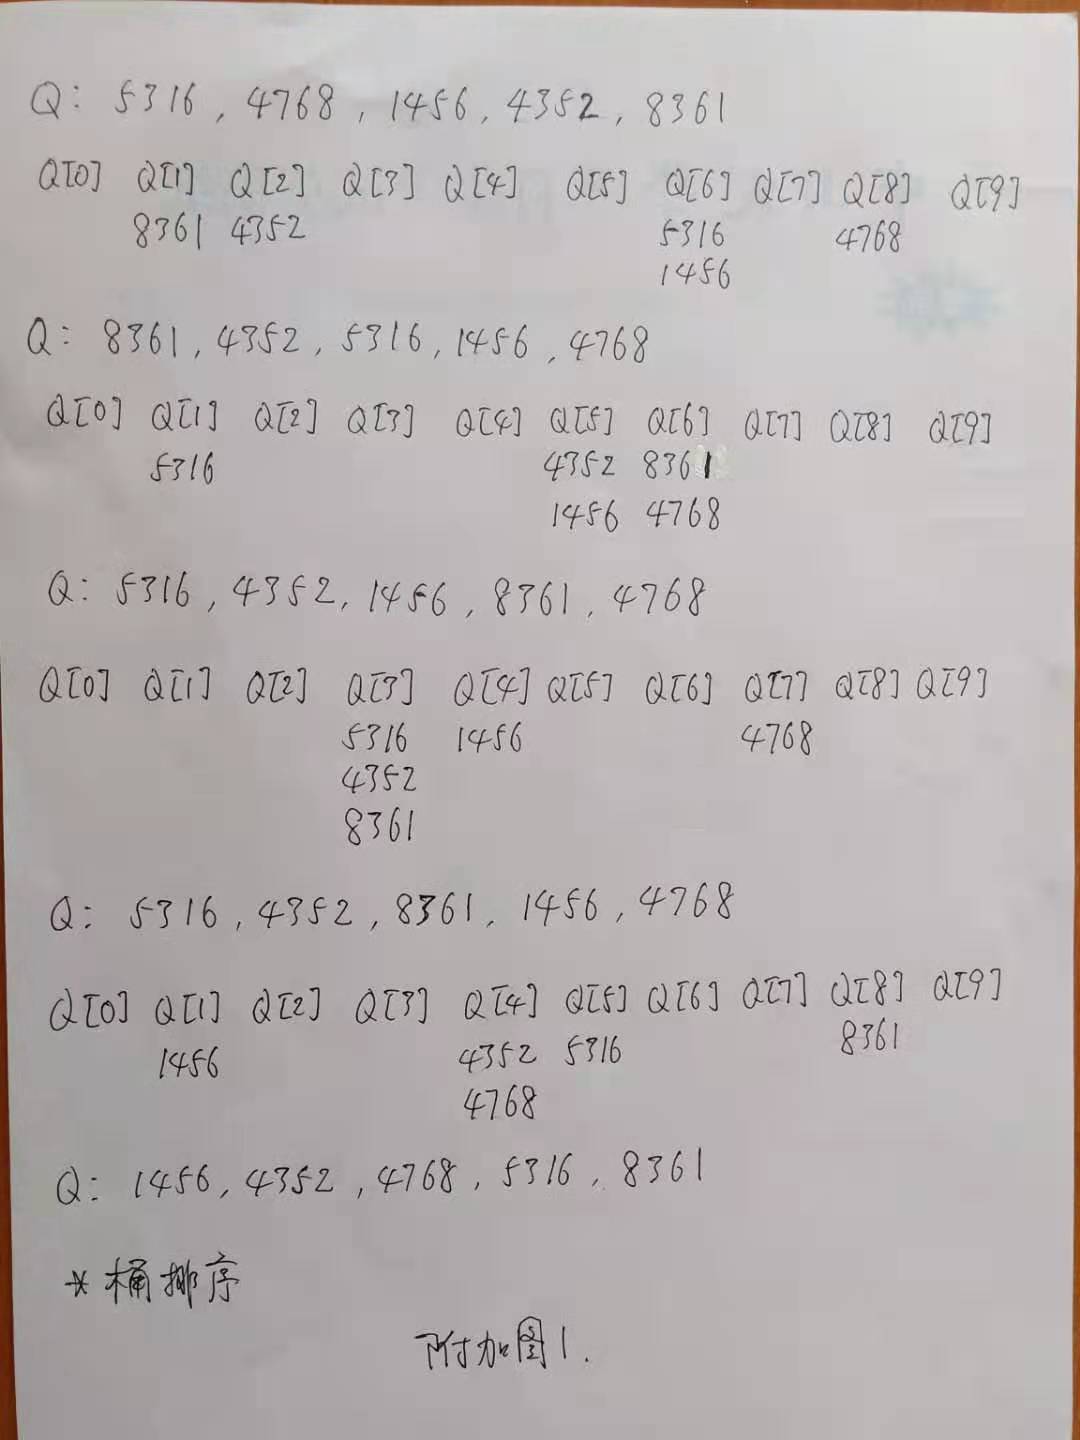 Q: 5316, 4768, 1456, 4352, 8361
Q[0] Q[1] Q[2] Q[3] Q[4] Q[5] Q[6] Q[7] Q[8] Q[9]
8361 4352 5316 4768
1456
Q: 8361, 4352, 5316, 1456, 4768
Q[0] Q[1] Q[2] Q[3] Q[4] Q[5] Q[6] Q[7] Q[8] Q[9]
5316 4352 8361
1456 4768
Q: 5316, 4352, 1456, 8361, 4768
Q[0] Q[1] Q[2] Q[3] Q[4] Q[5] Q[6] Q[7] Q[8] Q[9]
5316 1456 4768
4352
8361
Q: 5316, 4352, 8361, 1456, 4768
Q[0] Q[1] Q[2] Q[3] Q[4] Q[5] Q[6] Q[7] Q[8] Q[9]
1456 4352 5316 8361
4768
Q: 1456, 4352, 4768, 5316, 8361
*桶排序
附加图1.